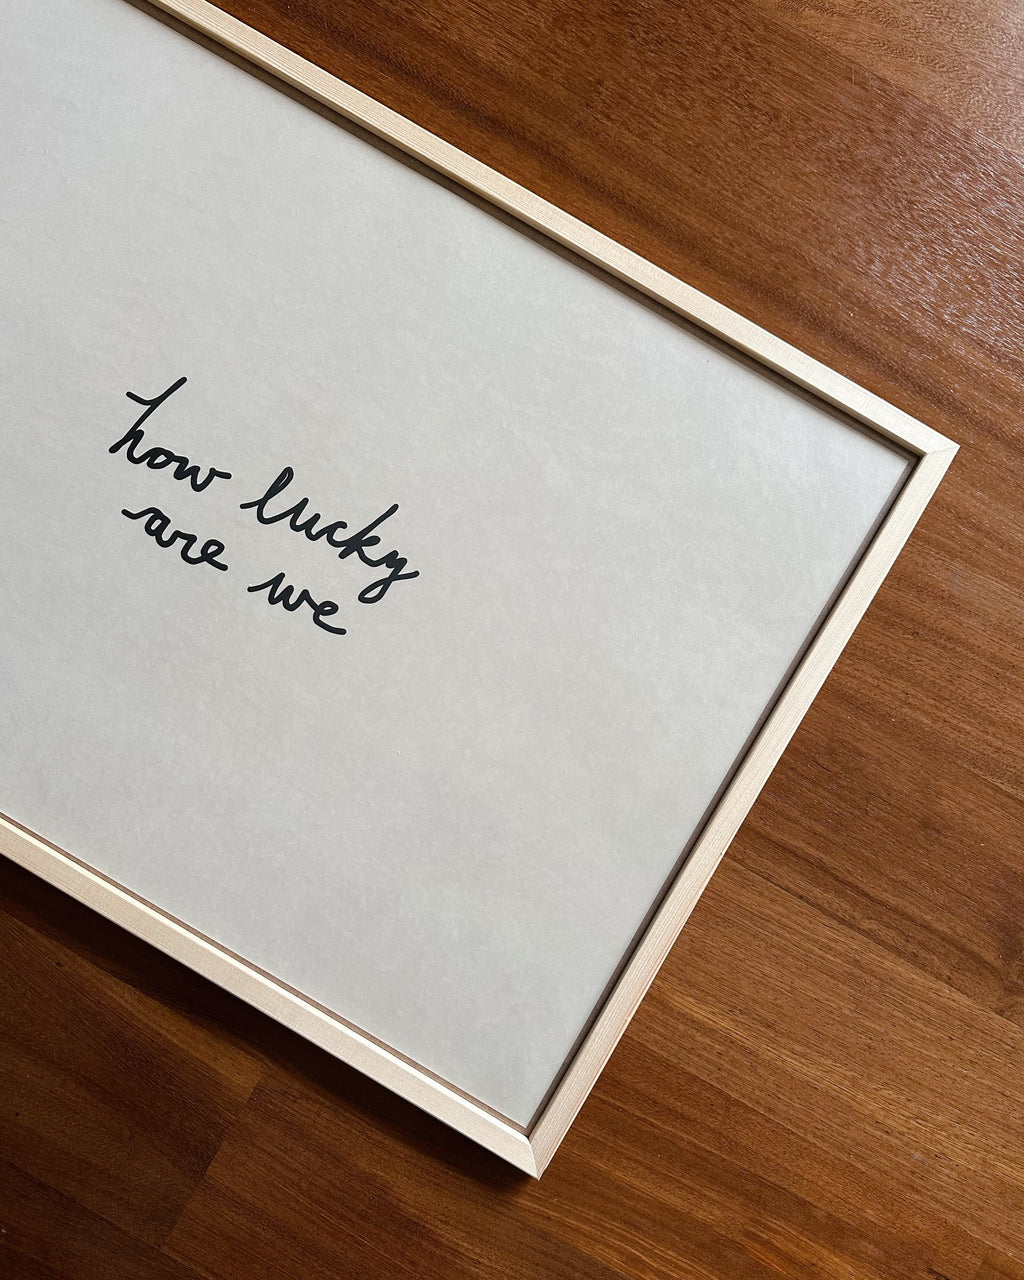 how lucky
are we